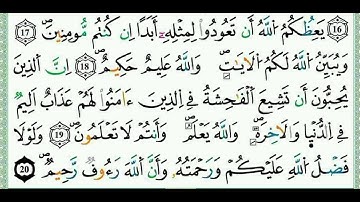 ١٦ يَعِظُكُمُ ٱللَّهُ أَن تَعُودُوا۟ لِمِثْلِهِۦٓ أَبَدًا إِن كُنتُم مُّؤْمِنِينَ ١٧
وَيُبَيِّنُ ٱللَّهُ لَكُمُ ٱلْـَٔايَـٰتِ ۚ وَٱللَّهُ عَلِيمٌ حَكِيمٌ ١٨ إِنَّ ٱلَّذِينَ
يُحِبُّونَ أَن تَشِيعَ ٱلْفَـٰحِشَةُ فِى ٱلَّذِينَ ءَامَنُوا۟ لَهُمْ عَذَابٌ أَلِيمٌ
فِى ٱلدُّنْيَا وَٱلْـَٔاخِرَةِ ۚ وَٱللَّهُ يَعْلَمُ وَأَنتُمْ لَا تَعْلَمُونَ ١٩ وَلَوْلَا
فَضْلُ ٱللَّهِ عَلَيْكُمْ وَرَحْمَتُهُۥ وَأَنَّ ٱللَّهَ رَءُوفٌ رَّحِيمٌ ٢٠